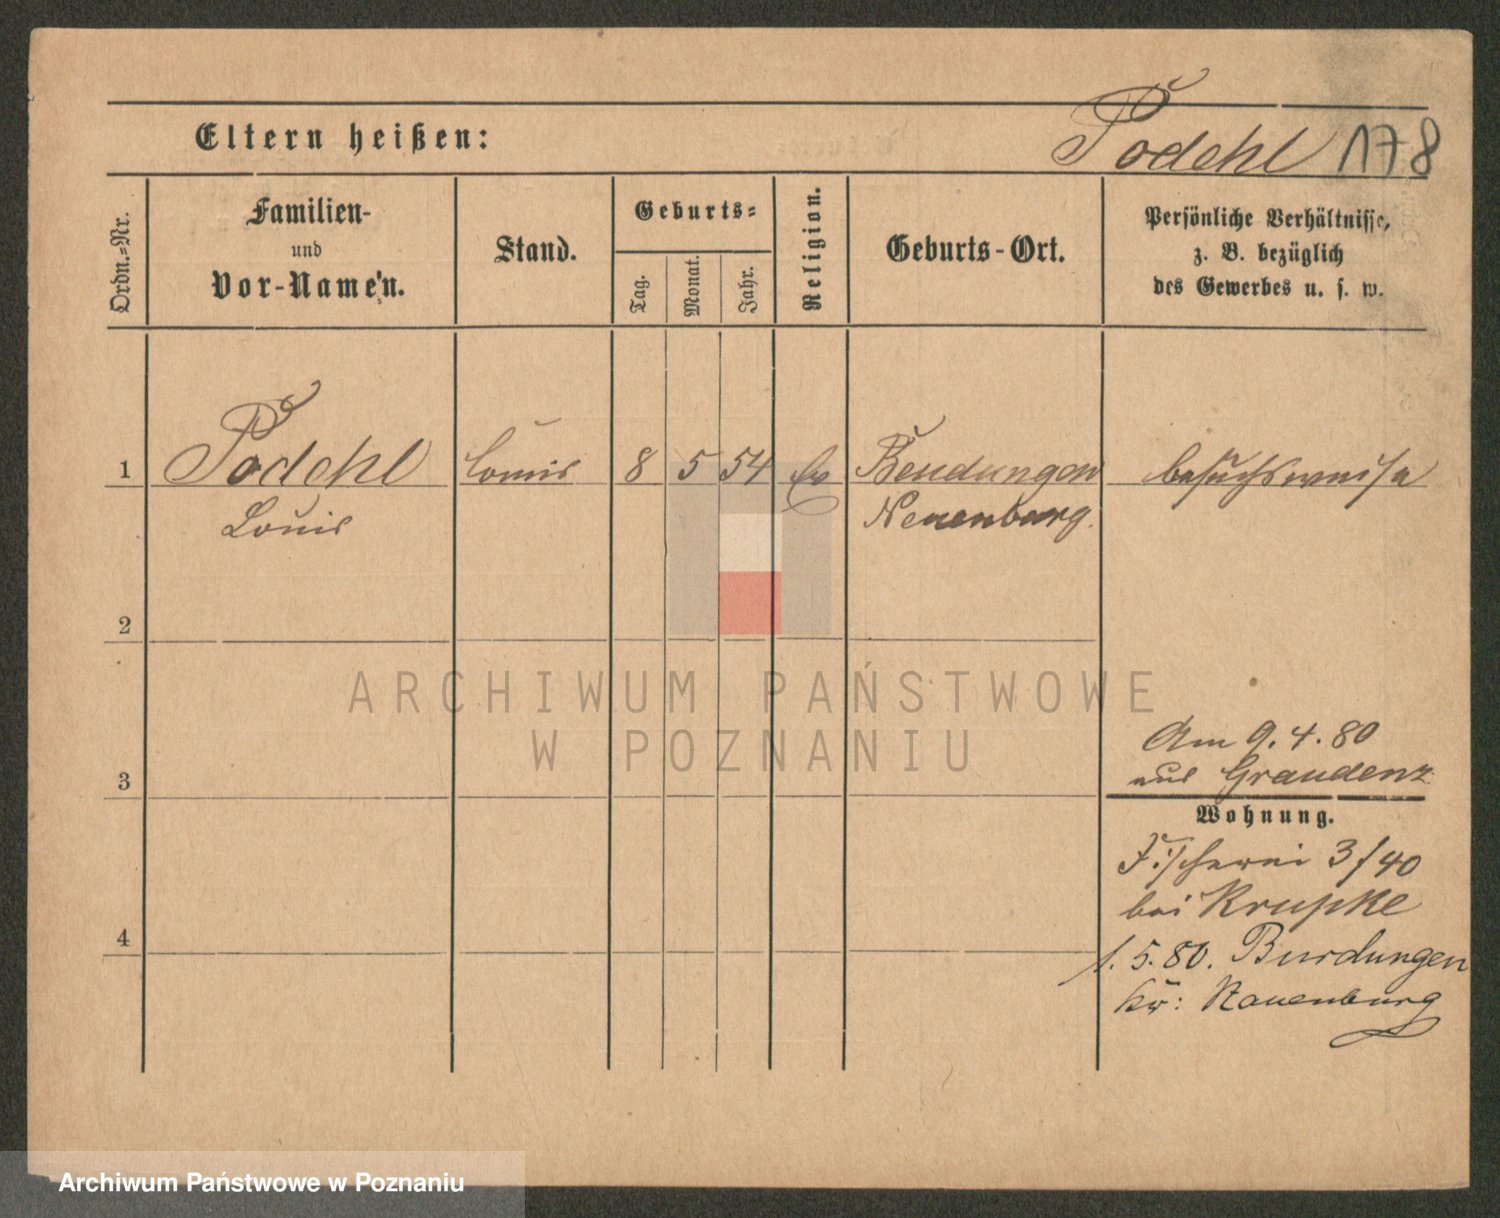 Eltern heißen:
Podehl 178
Ordn.=Nr.
Familien-
und
Vor-Namen.
Stand.
Geburts=
Tag.
Monat.
Jahr.
Religion.
Geburts-Ort.
Persönliche Verhältnisse,
z. B. bezüglich
des Gewerbes u. s. w.
1 Podehl Comis 8 5 54 Ev Bendungen besuchsweise
Louis Neuenburg.
2
3
4
Am 9. 4. 80
aus Graudenz
Wohnung.
Fischerei 3/40
bei Krupke
1. 5. 80. Burdungen
Kr: Nauenburg
ARCHIWUM PAŃSTWOWE
W POZNANIU
Archiwum Państwowe w Poznaniu